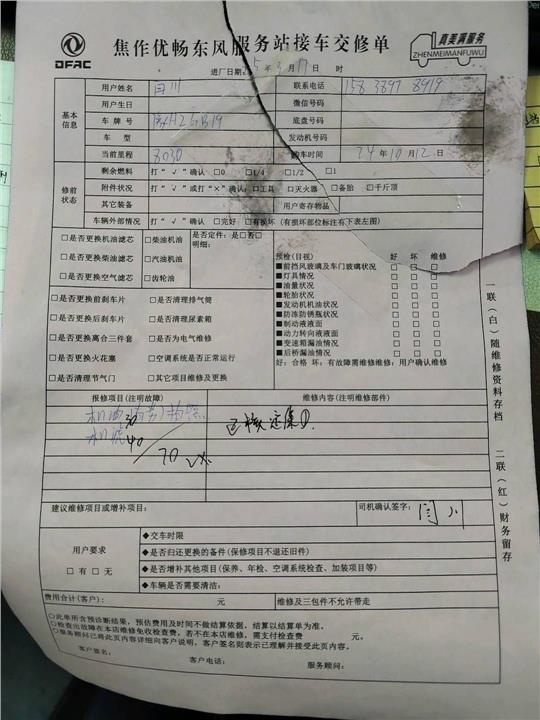 DFAC
焦作优畅东风服务站接车交修单
真美满服务
ZHENMEIMANFUWU
进厂日期: 5 年 3 月 17 日 时
基本信息
用户姓名 闫川 联系电话 158 3897 8919
用户生日 微信号码
车牌号 底盘号码
车型 发动机号码
当前里程 8030 购车时间 24 年 10 月 12 日
修前状态
剩余燃料 打“√”确认 □0 □1/4 □1/2 □1
附件状况 打“√”或打“×”确认: □工具 □灭火器 □备胎 □千斤顶
其它装备 用户寄存物品
车辆外部情况 打“√”确认 □完好 □有损坏 (有损坏部位标注有下表左图)
□是否更换机油滤芯 □柴油机油 是否定件: 是□否□
□是否更换柴油滤芯 □汽油机油 明细:
□是否更换空气滤芯 □齿轮油
□是否更换前刹车片 □是否清理排气筒
□是否更换后刹车片 □是否清理尿素箱
□是否更换离合三件套 □是否为电气维修
□是否更换火花塞 □空调系统是否正常运行
□是否清理节气门 □其它项目维修及更换
预检(目视) 好 坏 维修
■前挡风玻璃及车门玻璃状况 □ □ □
■灯具情况 □ □ □
■油量状况 □ □ □
■轮胎状况 □ □ □
■发动机机油状况 □ □ □
■防冻防锈瓶状况 □ □ □
■制动液液面 □ □ □
■动力转向液液面 □ □ □
■变速箱漏油情况 □ □ □
■后桥漏油情况 □ □ □
好: 合格 坏: 有故障需维修维修: 用户确认维修
报修项目(注明故障) 维修内容(注明维修部件)
机油 30
机滤 40
70
建议维修项目或增补项目: 司机确认签字: 闫川
用户要求
□有 □无
◆交车时限
◆是否归还更换的备件(保修项目不退还旧件)
◆是否增补其他项目(保养、年检、空调系统检查、加装项目等)
◆车辆是否需要清洁:
费用合计(客户): 元 维修及三包件不允许带走
○此单所含预诊断结果, 预估费用及时间不做结算依据, 结算以结算单为准。
○检查出故障在本店维修免收检查费, 若不在本店维修, 需支付检查费 元。
○服务顾问已将此页内容详细向客户说明, 客户签名则表示已理解并接受此页内容。
客户签名: 客户电话: 服务顾问:
一联(白)随维修资料存档
二联(红)财务留存